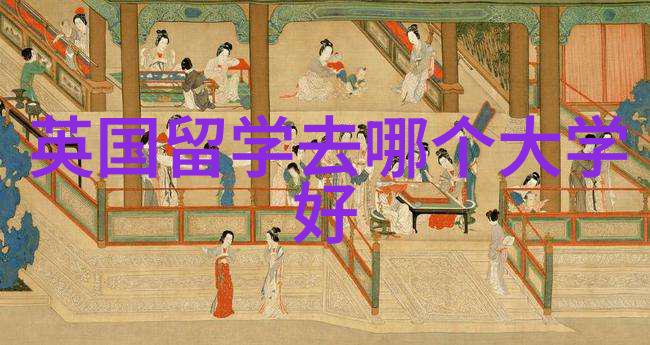 英国留学去哪个大学
好